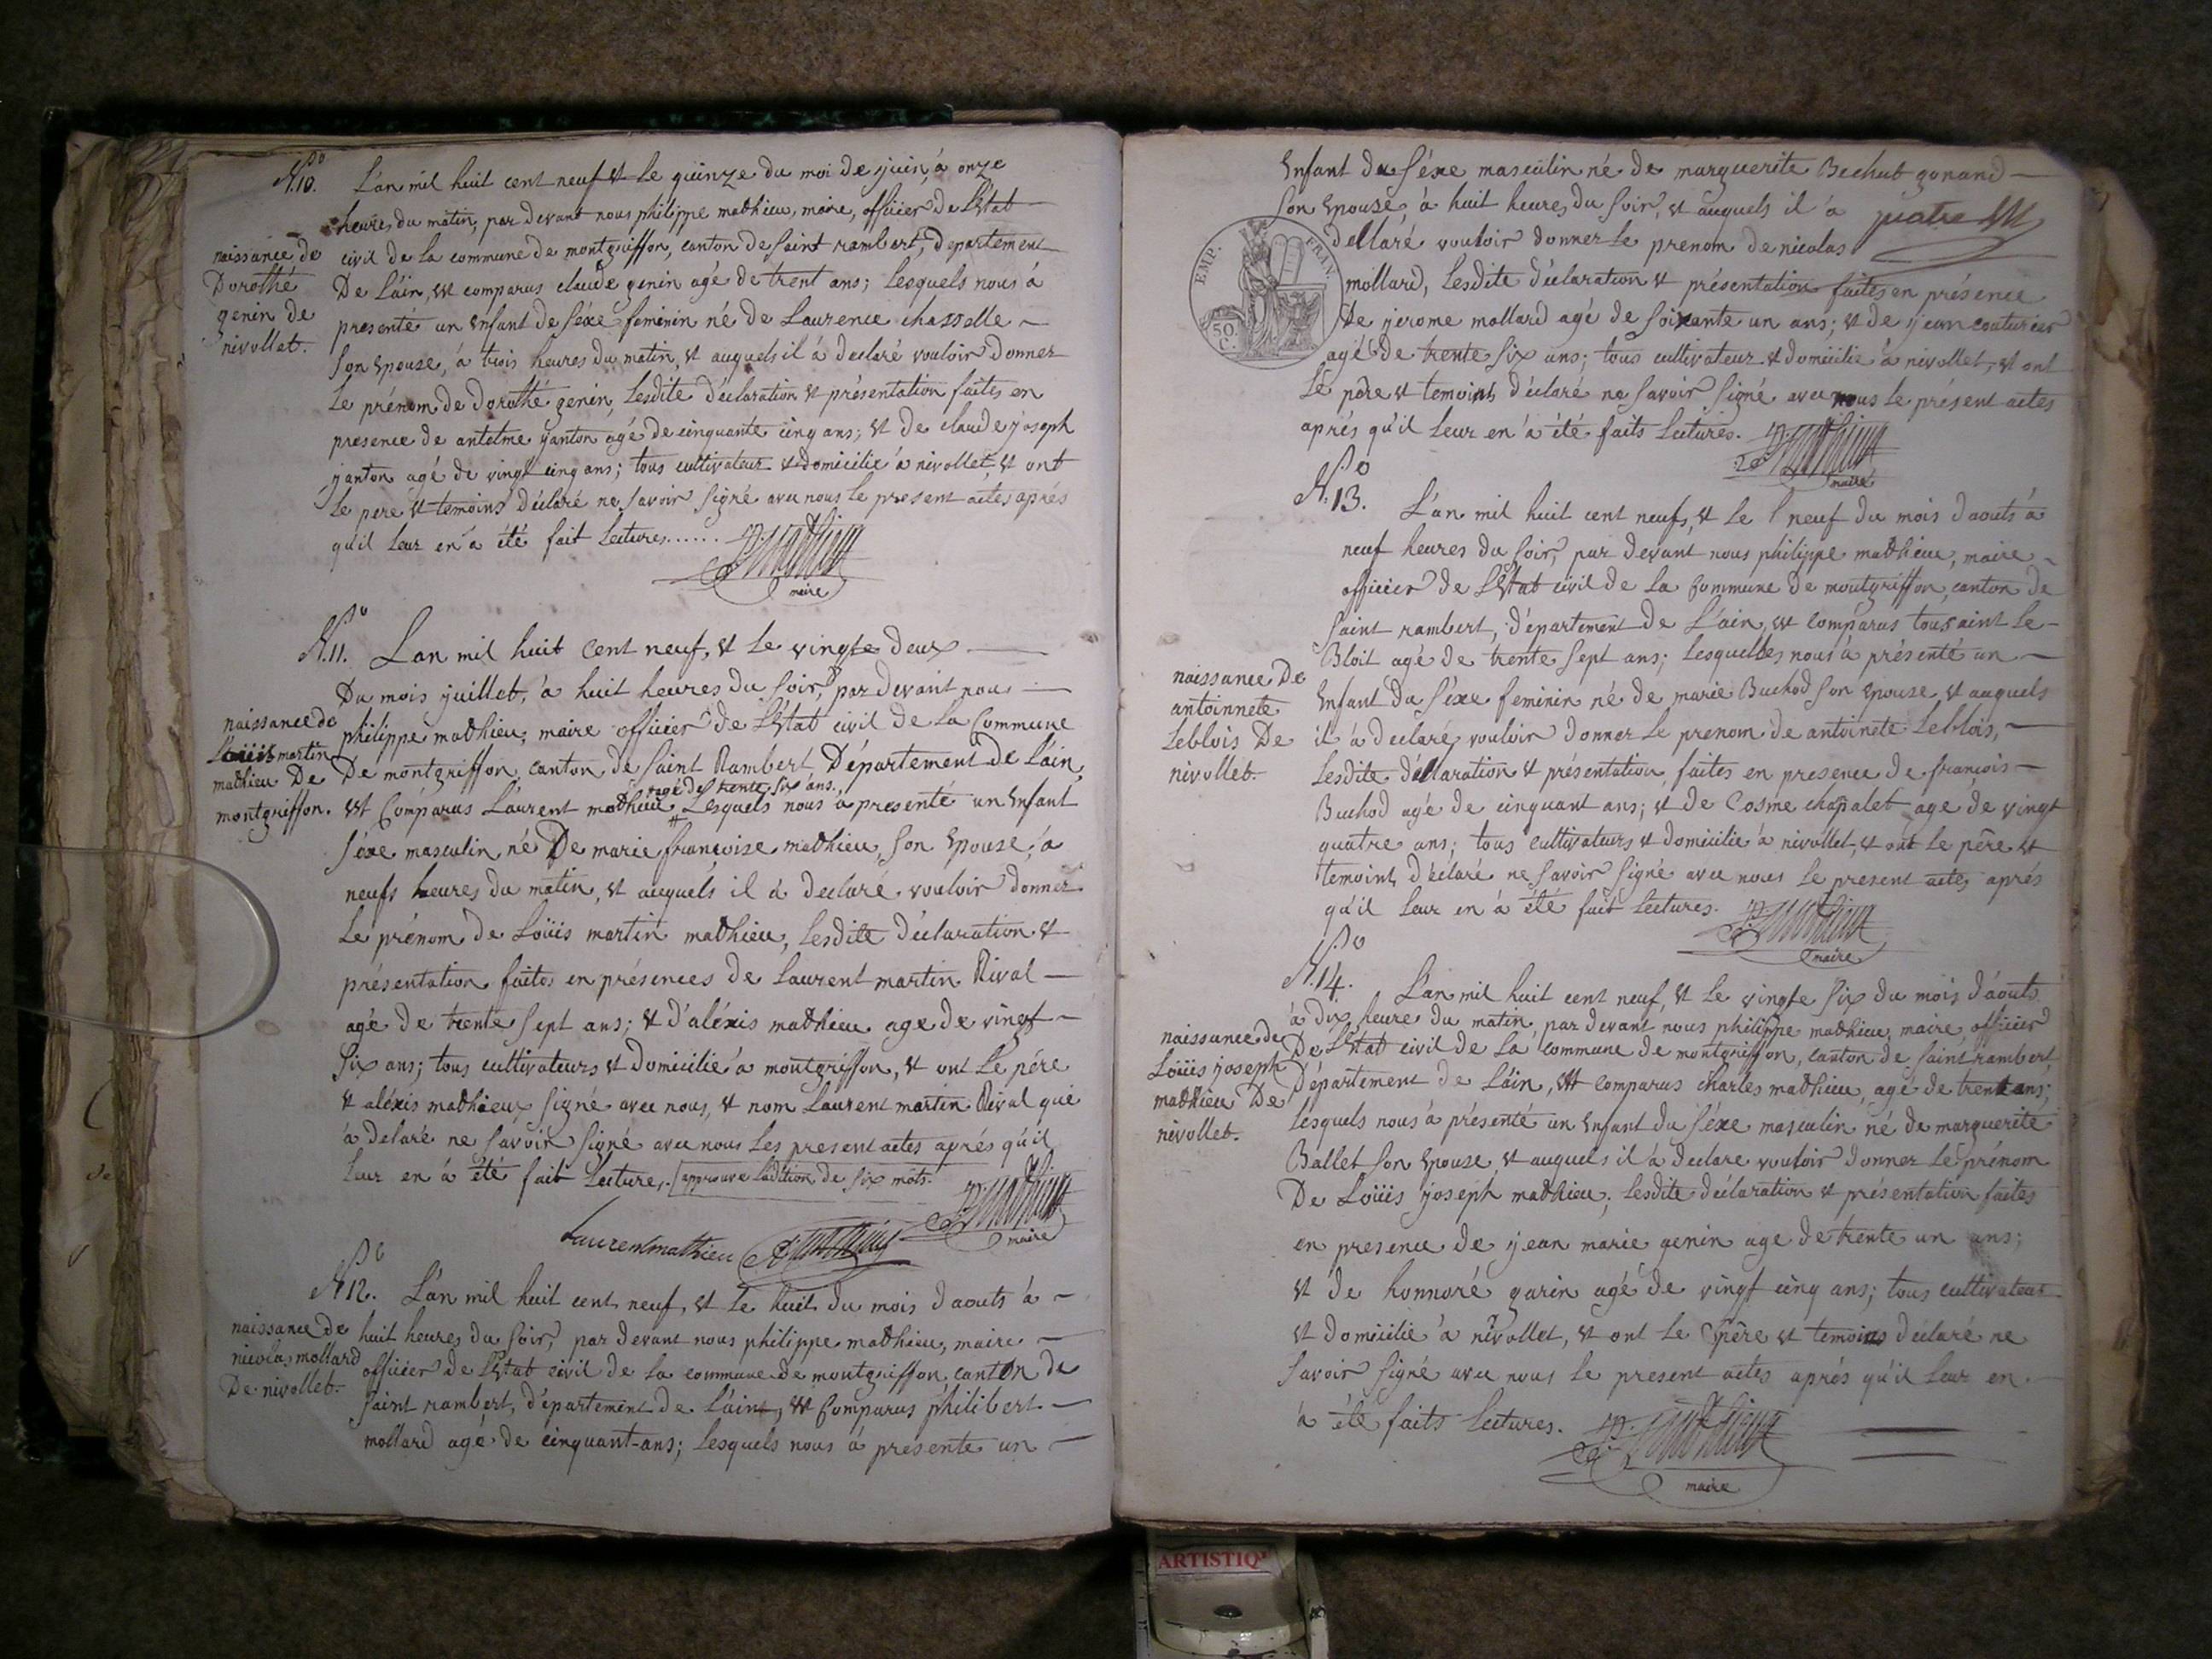 N.o 10. L'an mil huit cent neuf et le quinze du moi de juin, à onze
heures du matin, par devant nous philippe mathieu, maire, officier de l'Etat
civil de la commune de montgriffon, canton de saint rambert, departement
De L'ain, est comparus claude genin agé de trent ans; Lesquels nous à
presenté un Enfant de séxe feminin né de Laurence chasselle
son Epouse, à trois heures du matin, et auquels il à declaré vouloir donner
Le prénom de Dorothé genin, Lesdite déclaration et présentation faites en
presence de antelme janton agé de cinquante cinq ans; et de claude joseph
janton agé de vingt cinq ans; tous cultivateur et domicilie à nivollet, et ont
Le pere et temoins déclaré ne savoir signé avec nous Le present actes aprés
qu'il Leur en à été fait Lectures......
maire
naissance de
Dorothé
genin de
nivollet.
N.o 11. Lan mil huit Cent neuf, et Le vingte deux
Du mois juillet, à huit heures du soir, par devant nous
philippe mathieu, maire officier de L'Etat civil de La Commune
De montgriffon, canton de Saint Rambert, Département De L'ain,
agé de trente six ans.
est Comparus Laurent mathieu # Lesquels nous à presenté un Enfant
séxe masculin né De marie françoise mathieu, son Epouse, à
neufs heures du matin, et auquels il à declaré vouloir donner
Le prénom de Loüis martin mathieu, Lesdite déclaration et
présentation faites en présences de Laurent martin Rival
agé de trente sept ans; et d'aléxis mathieu age de vingt
six ans; tous cultivateurs et domicilié à montgriffon, et ont Le pére
et aléxis mathieu signé avec nous, et nom Laurent martin Rival qui
à delaré ne savoir signé avec nous Les present actes aprés qu'il
Leur en à été fait Lecture,. approuve L'adition de six mots.
Laurent mathieu
maire
naissance de
Loüis martin
mathieu De
montgriffon.
N.o 12. L'an mil huit cent neuf, et Le huit du mois daouts à
huit heures du soir, par devant nous philippe mathieu, maire
officier de L'Etat civil de La commune de montgriffon canton de
saint rambert, département de L'ain, est Comparus philibert
mollard agé de cinquant-ans; Lesquels nous à presente un
naissance de
nicolas mollard
De nivollet.
Enfant du séxe masculin né de marguerite Bechut gonand
son Epouse, à huit heures du soir, et auquels il à
dellaré vouloir donner Le prenom de nicolas
mollard, Lesdite déclaration et présentation faites en présence
De jerome mollard agé de soixante un ans; et de jean couturier
agé de trente six ans; tous cultivateur et domicilie à nivollet, et ont
Le pére et temoins déclaré ne savoir signé avec nous Le présent actes
aprés qu'il Leur en à été faits Lectures.
maire
EMP. FRAN.
50.
C.
N.o 13. L'an mil huit cent neufs, et Le neuf du mois daouts à
neuf heures du soir, par devant nous philippe mathieu, maire
officier de L'Etat civil de La Commune de montgriffon, canton de
saint rambert, département de L'ain, est comparus tousaint Le
Bloit agé de trente sept ans; Lesquelles nous à présenté un
Enfant du séxe feminin né de marie Buchod son Epouse, et auquels
il à declaré vouloir donner Le prenom de antoinete Leblois,
Lesdite déllaration et présentation faites en presence de françois
Buchod agé de cinquant ans; et de Cosme chapalet age de vingt
quatre ans; tous cultivateurs et domicilie à nivollet, et ont Le pêre et
temoins déclaré ne savoir signé avec nous Le present actes aprés
qu'il Leur en à été fait Lectures.
maire
naissance De
antoinnete
Leblois De
nivollet.
N.o 14. L'an mil huit cent neuf, et Le vingte six du mois d'aouts
à dix heure du matin, par devant nous philippe mathieu, maire, officier
De L'Etat civil de La commune de montgriffon, canton de saint rambert,
Département de L'ain, est comparus charles mathieu, agé de trent ans;
Lesquels nous à présenté un Enfant du séxe masculin né de marguerite
Ballet son Epouse, et auquels il à declare vouloir donner Le prénom
De Loüis joseph mathieu, Lesdite déclaration et présentation faites
en presence de jean marie genin age de trente un ans;
et de honnoré garin agé de vingt cinq ans; tous cultivateur
et domicilie à nivollet, et ont Le pêre et temoins déclaré ne
savoir signé avec nous Le present actes aprés qu'il Leur en
à été faits Lectures.
maire
naissance de
Loüis joseph
mathieu De
nivollet.
ARTISTIQ